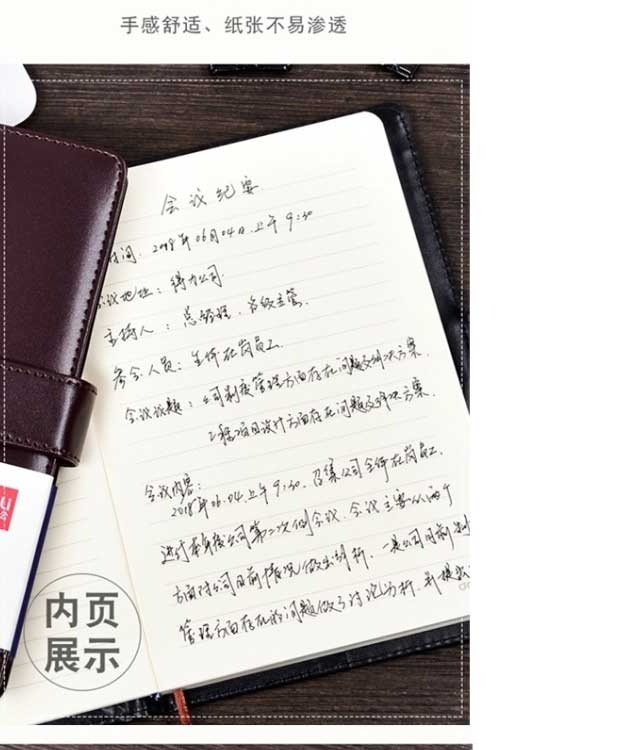 手感舒适、纸张不易渗透
会议纪要
时间:2018年06月04日.上午9:30
会议地址:得力公司.
主持人:总经理、各级主管.
参会人员:全体在岗员工.
会议议题:公司制度管理方面存在问题及解决方案.
工程项目设计方面存在问题及解决方案.
会议内容:
2018年06.04.上午9:30,召集公司全体在岗员工.
进行本年度公司第二次例会议.会议主要从两个
方面对公司目前情况做出剖析.一是公司目前
管理方面存在的问题做了讨论分析.
内页
展示